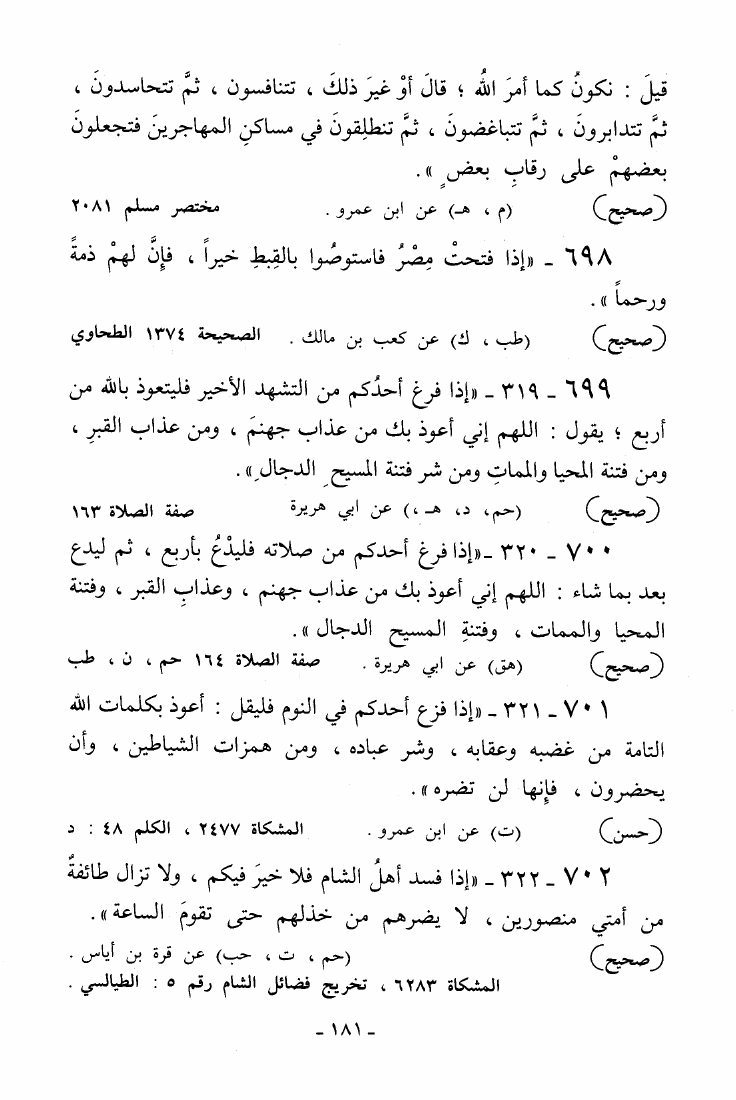 قيلَ : نكونُ كما أمرَ اللهُ ؛ قالَ أوْ غيرَ ذلكَ ، تتنافسون ، ثمَّ تتحاسدونَ ،
ثمَّ تتدابرونَ ، ثمَّ تتباغضونَ ، ثمَّ تنطلِقونَ في مساكنِ المهاجرينَ فتجعلونَ
بعضهمْ على رقابِ بعضٍ » .
(صحيح) (م ، هـ) عن ابن عمرو . مختصر مسلم ٢٠٨١
٦٩٨ ـ «إذا فتحتْ مِصْرُ فاستوصُوا بالقِبطِ خيراً ، فإنَّ لهمْ ذمةً
ورحماً » .
(صحيح) (طب ، ك) عن كعب بن مالك . الصحيحة ١٣٧٤ الطحاوي
٦٩٩ ـ ٣١٩ ـ «إذا فرغ أحدُكم من التشهد الأخير فليتعوذ بالله من
أربع ؛ يقول : اللهم إني أعوذ بك من عذاب جهنمَ ، ومن عذاب القبرِ ،
ومن فتنة المحيا والمماتِ ومن شر فتنة المسيحِ الدجالِ» .
(صحيح) (حم، د، هـ ،) عن ابي هريرة صفة الصلاة ١٦٣
٧٠٠ ـ ٣٢٠ ـ «إذا فرغ أحدكم من صلاته فليدْعُ بأربع ، ثم ليدع
بعد بما شاء : اللهم إني أعوذ بك من عذاب جهنم ، وعذابِ القبر ، وفتنة
المحيا والممات ، وفتنةِ المسيح الدجال » .
(صحيح) (هق) عن ابي هريرة . صفة الصلاة ١٦٤ حم ، ن ، طب
٧٠١ ـ ٣٢١ ـ «إذا فزع أحدكم في النوم فليقل : أعوذ بكلمات الله
التامة من غضبه وعقابه ، وشر عباده ، ومن همزات الشياطين ، وأن
يحضرون ، فإنها لن تضره» .
(حسن) (ت) عن ابن عمرو . المشكاة ٢٤٧٧ ، الكلم ٤٨ : د
٧٠٢ ـ ٣٢٢ ـ «إذا فسد أهلُ الشام فلا خيرَ فيكم ، ولا تزال طائفةٌ
من أمتي منصورين ، لا يضرهم من خذلهم حتى تقومَ الساعة» .
(صحيح) (حم ، ت ، حب) عن قرة بن أياس .
المشكاة ٦٢٨٣ ، تخريج فضائل الشام رقم ٥ : الطيالسي .
ـ ١٨١ ـ